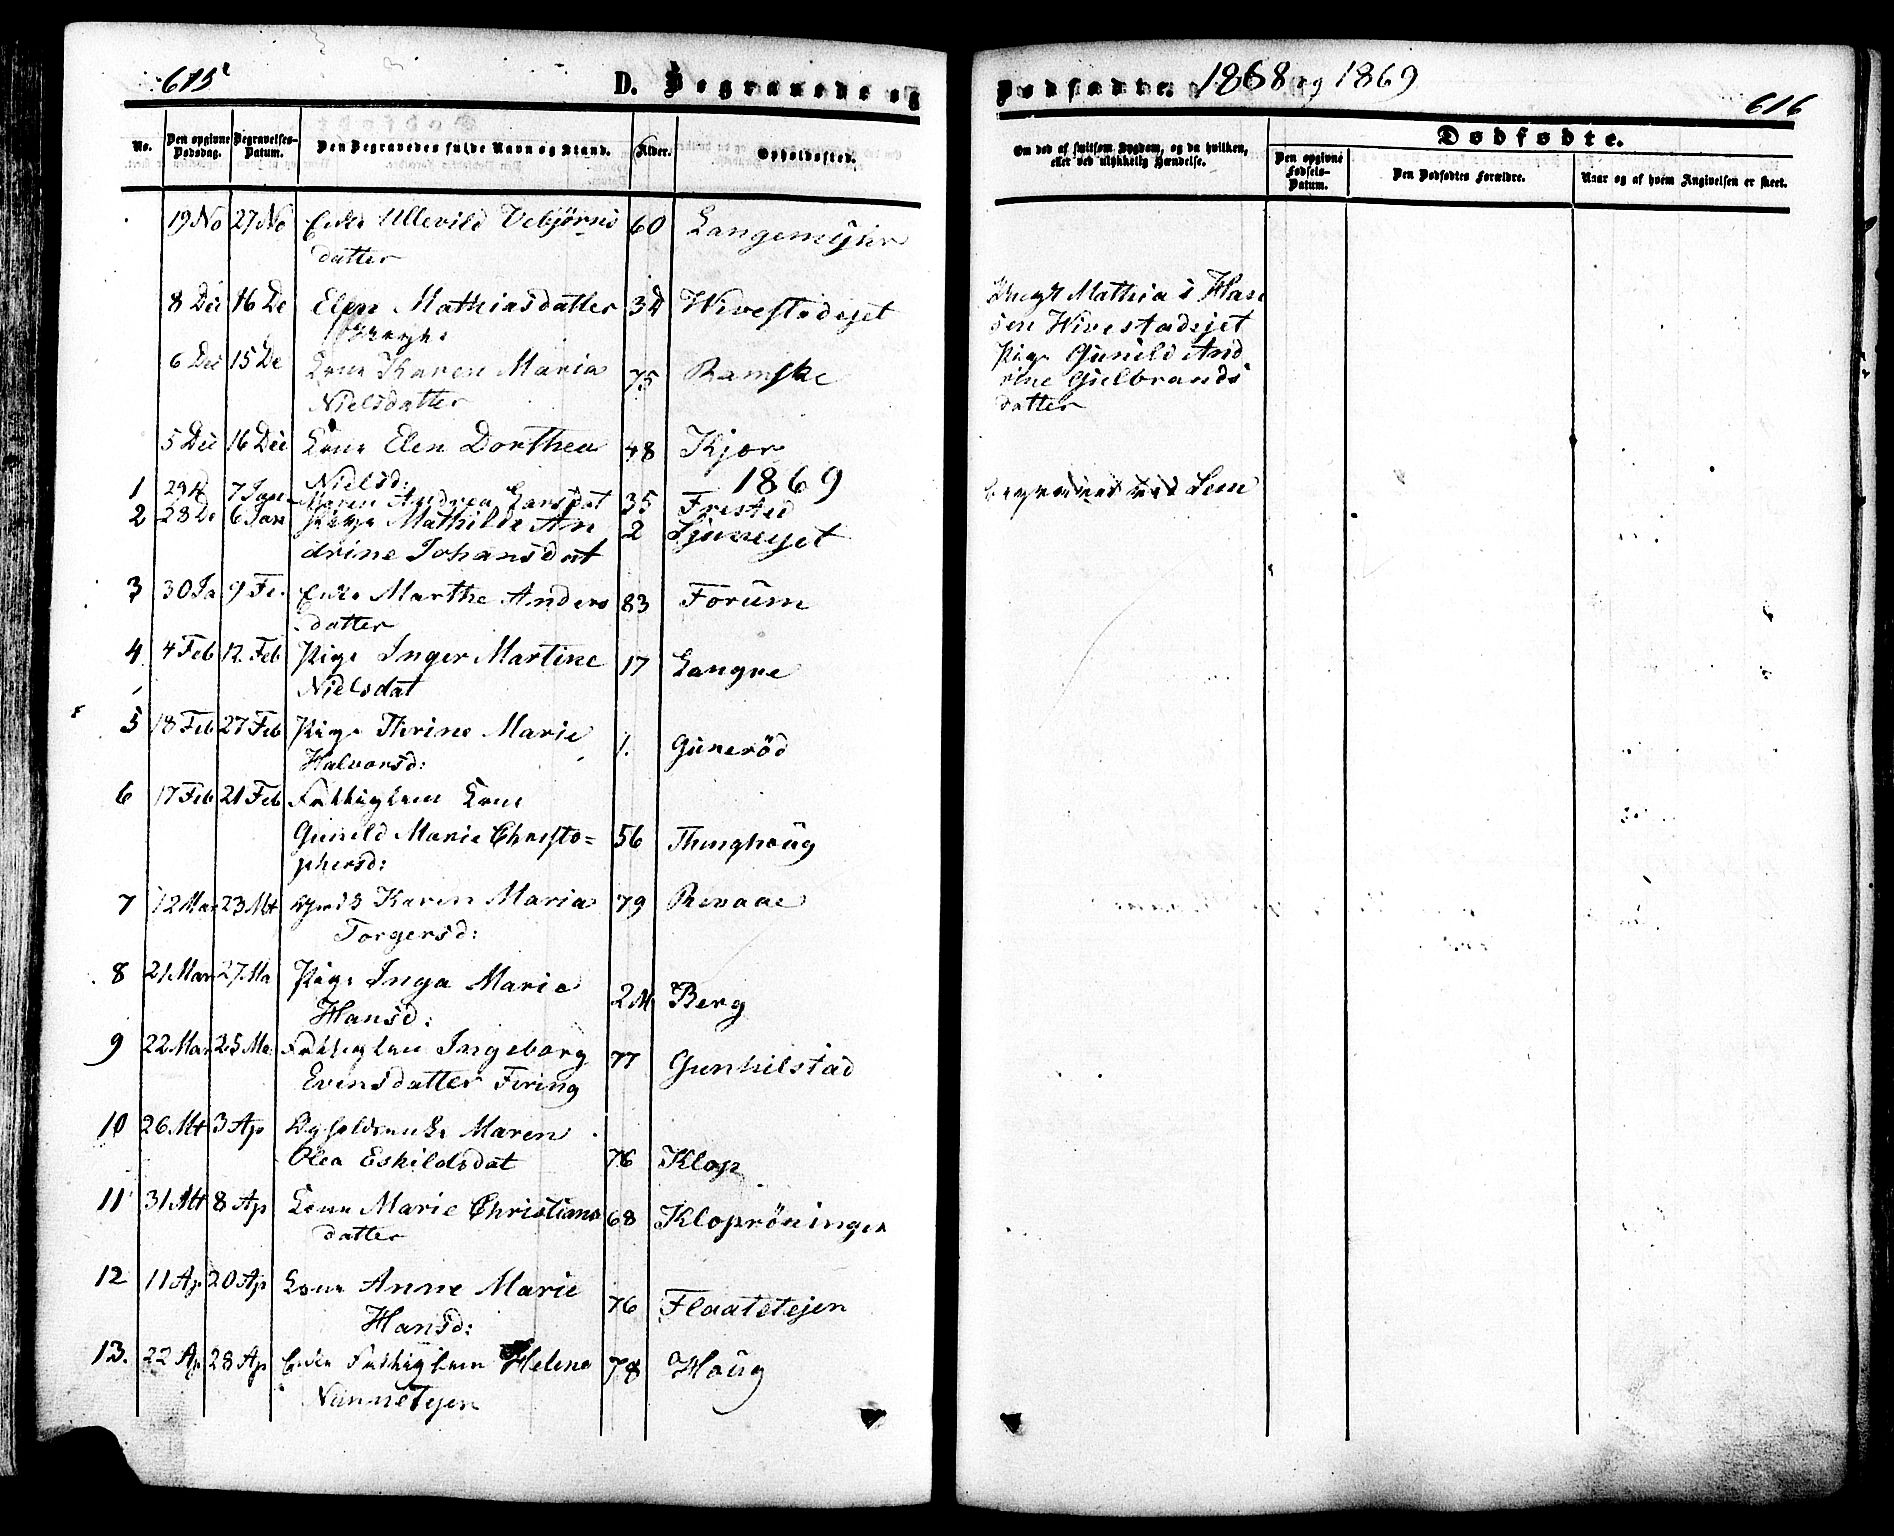 615
D. Begravede og
No.
Den opgivne Dødsdag.
Begravelses-Datum.
Den Begravedes fulde Navn og Stand.
Alder.
Opholdssted.
19 No 27 No Enke Ullevild Vebjørns 60 Langemyhr
datter
8 Dec 16 De Elen Mathiasdatter 32 Wivestadejet
6 Dec 15 De Kone Karen Maria 75 Ramske
Nielsdatter
5 Dec 16 Dec Kone Elen Dorthea 48 Kjær
Nielsd:
1869
1 29 D 7 Jan Maren Andrea Larsdat 35 Frested
2 28 De 6 Jan Pige Mathilde An 2
drine Johansdat
3 30 Ja 9 Fe Enke Marthe Anders 83 Forum
datter
4 4 Feb 12 Feb Pige Inger Martine 17 Langre
Nielsdat
5 18 Feb 27 Feb Pige Thrine Marie 1. Gunerød
Halvorsd:
6 17 Feb 21 Feb Fattiglem Kone
Gunild Marie Christo= 56 Thunghoug
phersd:
7 12 Mar 23 Mt Karen Maria 79 Revaae
Torgersd:
8 21 Mar 27 Ma Pige Inga Marie 2 M Berg
Hansd:
9 22 Mar 25 Ma Fattiglem Ingeborg 77 Gunhilstad
Evensdatter Firing
10 26 Mt 3 Ap Maren
Olea Eskildsdat 76 Klop
11 31 Mt 8 Ap Kone Marie Christians 68 Kloprøningen
datter
12 11 Ap 20 Ap Kone Anne Marie 76 Flaatetejen
Hansd:
13. 22 Ap 28 Ap Enke Fattiglem Helene 78 Houg
Nunnetejen
Dødfødte. 1868 og 1869
616
Om død af smitsom Sygdom, og da hvilken,
eller ved ulykkelig Hændelse.
Dødfødte.
Den opgivne Fødsels-Datum.
Den Dødfødtes Forældre.
Naar og af hvem Angivelsen er skeet.
Mathias Han
sen Wivestadejet
Pige Gunild And
rine Gulbrands
datter
begravet ved Sem